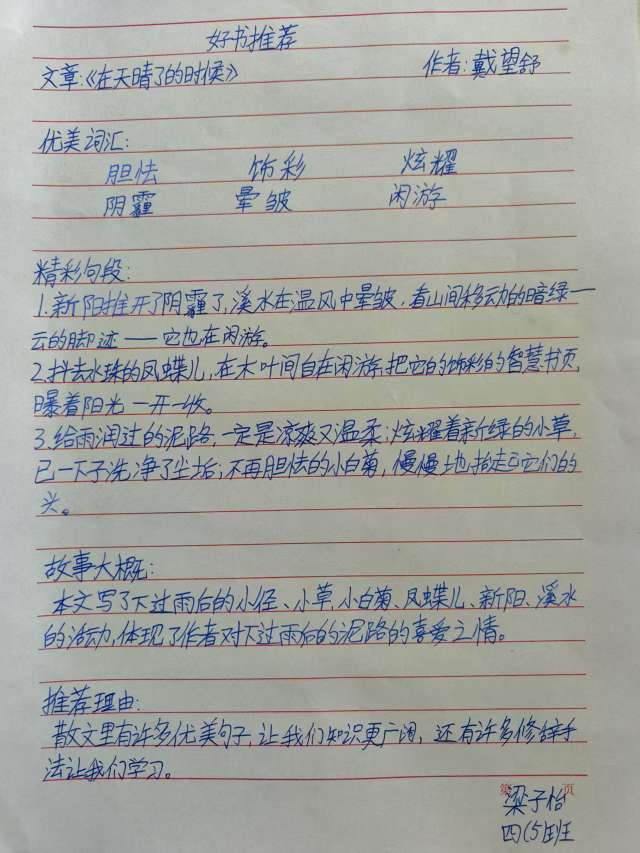 好书推荐
文章:《在天晴了的时候》 作者:戴望舒
优美词汇:
胆怯 饰彩 炫耀
阴霾 晕皱 闲游
精彩句段:
1.新阳推开了阴霾了,溪水在温风中晕皱,看山间移动的暗绿——
云的脚迹——它也在闲游。
2.抖去水珠的凤蝶儿,在木叶间自在闲游,把它的饰彩的智慧书页,
曝着阳光一开一收。
3.给雨润过的泥路,一定是凉爽又温柔;炫耀着新绿的小草,
已一下子洗净了尘垢;不再胆怯的小白菊,慢慢地抬起它们的
头。
故事大概:
本文写了下过雨后的小径、小草、小白菊、凤蝶儿、新阳、溪水
的活动,体现了作者对下过雨后的泥路的喜爱之情。
推荐理由:
散文里有许多优美句子,让我们知识更广阔,还有许多修辞手
法让我们学习。
第 页
梁子怡
四(5)班